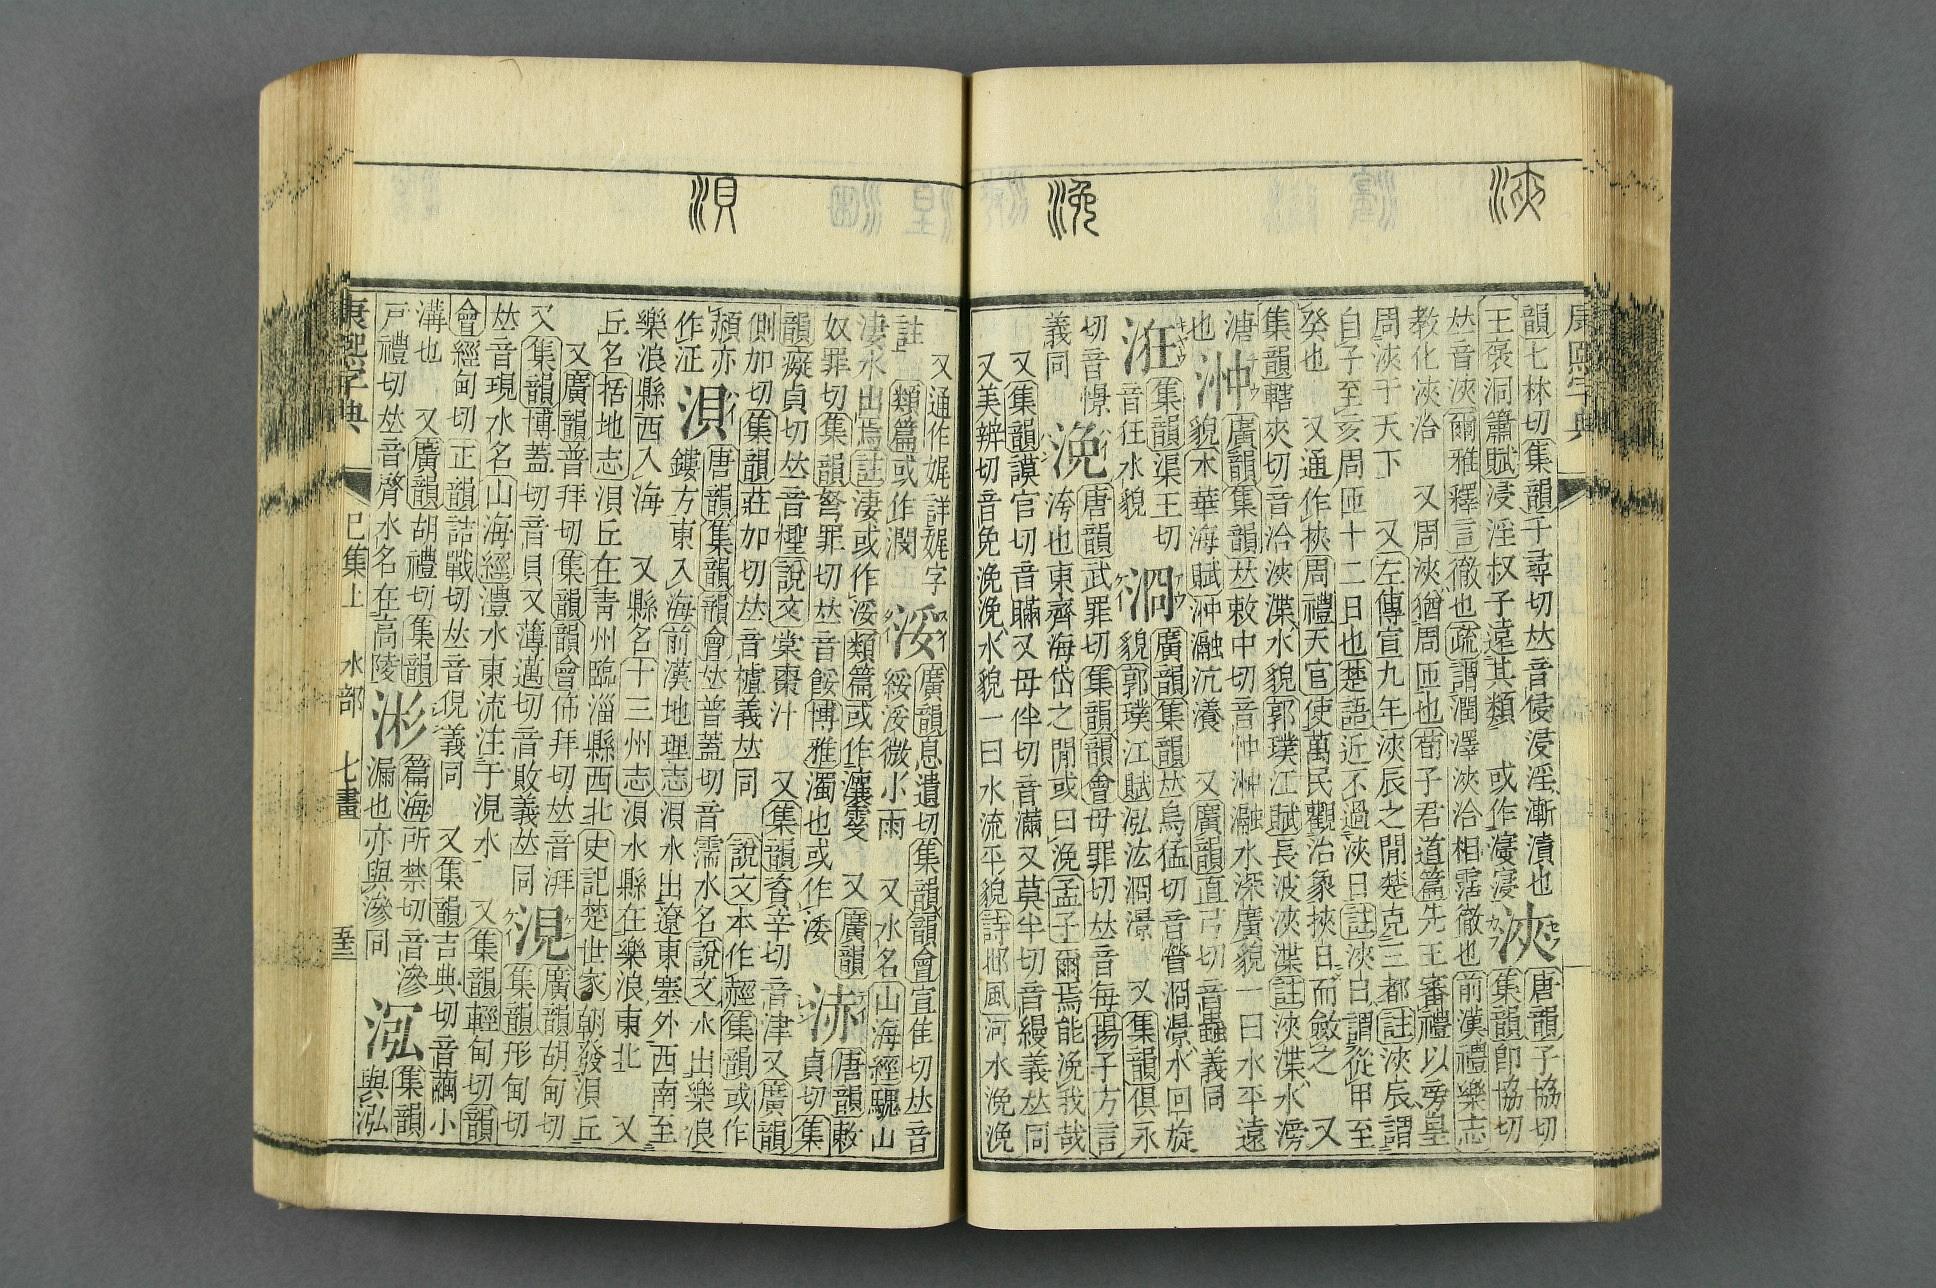 浹
浼
浿
韻七林切集韻千尋切𠀤音侵浸淫漸漬也
浹
唐韻子協切
王褒洞簫賦浸淫叔子遠其類 或作濅寖
集韻卽協切
𠀤音浹爾雅釋言徹也疏謂潤澤浹洽相霑徹也前漢禮樂志
教化浹洽 又周浹猶周匝也荀子君道篇先王審禮以旁皇
周浹于天下 又左傳宣九年浹辰之閒楚克三都註浹辰謂
自子至亥周匝十二日也楚語近不過浹日註浹日謂從甲至
癸也 又通作挾周禮天官使萬民觀治象挾日而斂之 又
集韻轄夾切音洽浹渫水貌郭璞江賦長波浹渫註浹渫水滂
溏
浺
廣韻集韻𠀤敕中切音忡浺瀜水深廣貌一曰水平遠
也
貌木華海賦沖瀜沆瀁 又廣韻直弓切音蟲義同
浤
集韻渠王切
音狂水貌
浻
廣韻集韻𠀤烏猛切音䁝浻濴水回旋
貌郭璞江賦泓汯浻澋 又集韻俱永
切音憬
浼
唐韻武罪切集韻韻會母罪切𠀤音每揚子方言
洿也東齊海岱之閒或曰浼孟子爾焉能浼我哉
義同
又集韻謨官切音瞞又母伴切音滿又莫半切音縵義𠀤同
又美辨切音免浼浼水貌一曰水流平貌詩邶風河水浼浼
又通作娓詳娓字
浽
廣韻息遺切集韻韻會宣隹切𠀤音
註 類篇或作潣
綏浽微小雨 又水名山海經騩山
淒水出焉註淒或作浽類篇或作瀼霎 又廣韻
奴罪切集韻弩罪切𠀤音餒博雅濁也或作㴋
浾
唐韻敕
貞切集
韻癡貞切𠀤音檉說文棠棗汁 又集韻資辛切音津又廣韻
側加切集韻莊加切𠀤音樝義𠀤同 說文本作䞓集韻或作
赬亦作泟
浿
唐韻集韻韻會𠀤普蓋切音霈水名說文水出樂浪
鏤方東入海前漢地理志浿水出遼東塞外西南至
樂浪縣西入海 又縣名十三州志浿水縣在樂浪東北 又
丘名括地志浿丘在靑州臨淄縣西北史記楚世家朝發浿丘
又廣韻普拜切集韻韻會怖拜切𠀤音湃
又集韻博蓋切音貝又薄邁切音敗義𠀤同
涀
廣韻胡甸切
集韻形甸切
𠀤音現水名山海經澧水東流注于涀水 又集韻輕甸切韻
會經甸切正韻詰戰切𠀤音俔義同 又集韻吉典切音繭小
溝也 又廣韻胡禮切集韻
戸禮切𠀤音徯水名在高陵
浵
篇海所禁切音滲
漏也亦與滲同
泓
集韻
與泓
康熙字典
巳集上 水部 七畫